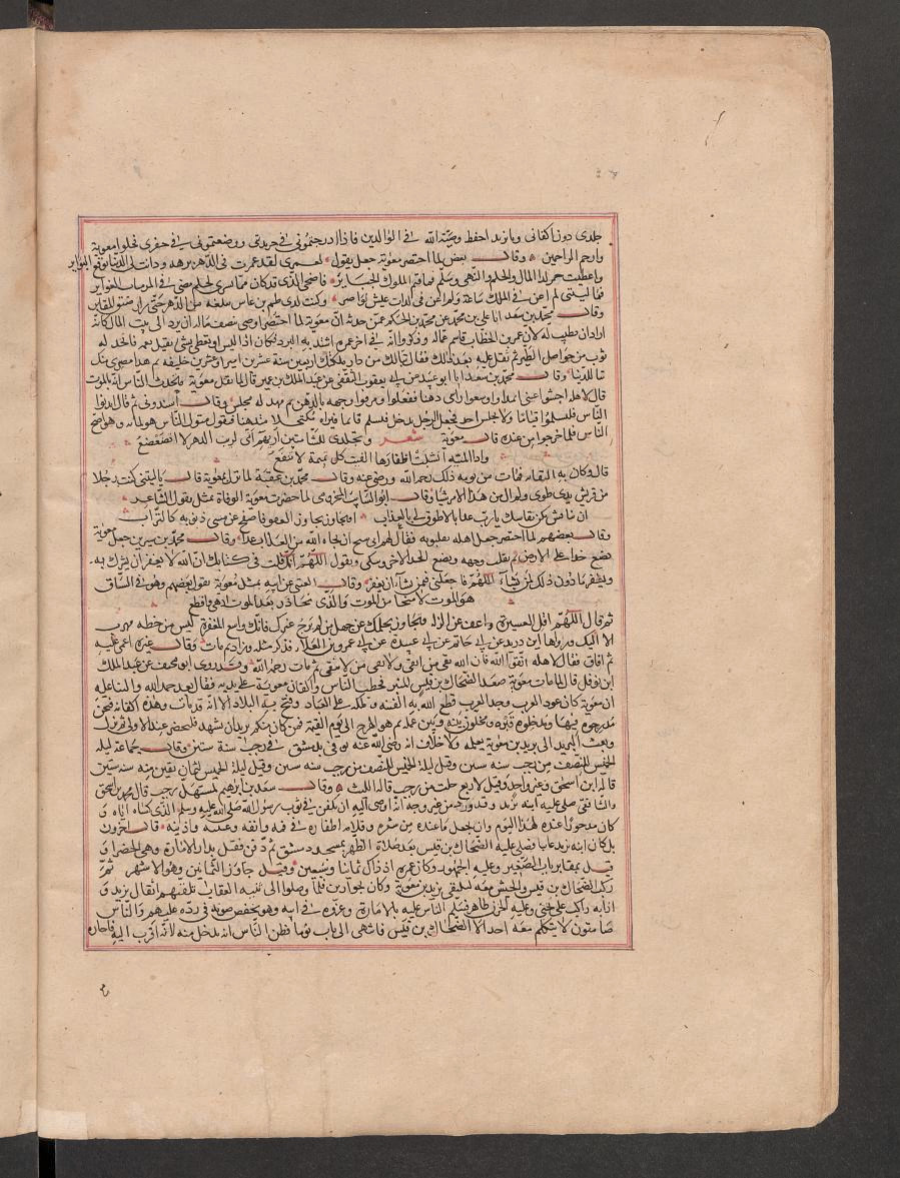 جلدى دون اكفانى ويا يزيد احفظ وصية الله في الوالدين فاذا ادرجتمونى في جريدتى ووضعتمونى في حفرتى فخلوا معوية
وارحم الراحمين وقال بعضهم لما احتضر معوية جعل يقول لعمرى لقد عمرت في الدهر برهة ودانت لى الدنيا بوقع البواتر
واعطيت حمر المال والحلم والنهى وسلم قماقم الملوك الجبابر فاضحى الذى قد كان مما يسرنى كحلم مضى في المزمنات الغوابر
فيا ليتنى لم اعن في الملك ساعة ولم اعن في لذات عيش نواضر وكنت كذى طمرين عاش ببلغة من الدهر حتى زار ضنك المقابر
وقال محمد بن سعد انا على بن محمد عن محمد بن الحكم عمن حدثه ان معوية لما احتضر اوصى بنصف ماله ان يرد الى بيت المال كانه
اراد ان يطيب له لان عمر بن الخطاب قاسم عماله وذكروا انه في اخر عمره اشتد به البرد فكان اذا لبس او تغطى بشئ ثقيل يغمه فاتخذ له
ثوب من حواصل الطير ثم ثقل عليه بعد ذلك فقال تبا لك من دار ملكتك اربعين سنة عشرين امير وعشرين خليفه ثم هذا مصيرى منك
تبا للدنيا وقال محمد بن سعد انا ابو عبيد عن ابي يعقوب الثقفى عن عبد الملك بن عمير قال لما ثقل معوية وتحدث الناس انه بالموت
قال لاهله احشوا عينى اثمدا واوسعوا راسى دهنا ففعلوا وبرقوا وجهه بالدهن ثم مهد له مجلس وقال اسندونى ثم قال ايذنوا
الناس فليسلموا قياما ولا يجلس احد فجعل الرجل يدخل فيسلم قائما فيراه مكتحلا مدهنا فيقول متقول الناس هو لمابه وهو اصح
الناس فلما خرجوا من عنده قال معوية شعر وتجلدى للشامتين اريهم انى لريب الدهر لا اتضعضع
واذا المنية انشبت اظفارها الفيت كل تميمة لا تنفع
قال وكان به النقابه فمات من يومه ذلك رحمه الله ورضى عنه وقال محمد بن عقبة لما نزل بمعوية قال ياليتنى كنت رجلا
من قريش بذى طوى ولم ال من هذا الامر شيا وقال ابو السائب المخزومى لما حضرت معوية الوفاة تمثل بقول الشاعر
ان تناقش يكن نقاشك يا رب عذابا لا طوق لى بالعذاب او تجاوز تجاوز العفو فاصفح عن مسئ ذنوبه كالتراب
وقال بعضهم لما احتضر جعل اهله يقلبونه فقال لهم اى شيخ ان نجاه الله من العذاب غدا وقال محمد بن سيرين جعل معوية
يضع خدا على الارض ثم يقلب وجهه ويضع الخد الاخر ويبكى ويقول اللهم انك قلت في كتابك ان الله لا يغفر ان يشرك به
ويغفر ما دون ذلك لمن يشاء اللهم فاجعلنى فيمن تشاء ان يغفر وقال العتبى عن ابيه تمثل معوية بقول بعضهم وهو في السياق
هو الموت لا منجا من الموت والذى نحاذر بعد الموت ادهى وافظع
ثم قال اللهم اقل العسيرة واعف عن الزلة وتجاوز بحلمك عن جهل من لم يرج غيرك فانك واسع المغفرة ليس من خطه مهرب
الا اليك ورواها ابن دريد عن ابي حاتم عن ابي عبيدة عن ابي عمرو بن العلا فذكر مثله وزاد ثم مات وقال غيره اغمى عليه
ثم افاق فقال لاهله اتقوا الله فان الله يقى من اتقى ولا يقى من لا يتقى ثم مات رحمه الله وقد روى ابو مخنف عن عبد الملك
ابن نوفل قال لما مات معوية صعد الضحاك بن قيس المنبر فخطب الناس واكفان معوية على يديه فقال بعد حمد الله والثنا عليه
ان معوية كان عود العرب وجد العرب قطع الله به الفتنه وملكه على العباد وفتح به البلاد الا انه قد مات وهذه اكفانه فنحن
مدرجوه فيها ومدخلوه قبره ومخلون بينه وبين عمله ثم هو الهرج الى يوم القيمة فمن كان منكم يريد ان يشهد فليحضر عند الاولى ثم نزل
وبعث البريد الى يزيد بن معوية يعلمه ولا خلاف انه رضى الله عنه توفى بدمشق في رجب سنة ستين وقال جماعة ليلة
الخميس للنصف من رجب سنه ستين وقيل ليلة الخميس للنصف من رجب سنه ستين وقيل ليلة الخميس لثمان بقين منه سنه ستين
قاله ابن اسحق وغير واحد وقيل لاربع خلت من رجب قاله الليث وقال سعد بن ابرهيم لمستهل رجب قال محمد بن اسحق
والشافعى صلى عليه ابنه يزيد وقد ورد من غير وجه انه اوصى اليه ان يكفن في ثوب رسول الله صلى الله عليه وسلم الذى كساه اياه و
كان مدخرا عنده لهذا اليوم وان يجعل ما عنده من شعره وقلامه اظفاره في فيه وانفه وعينيه واذنيه وقال اخرون
بل كان ابنه يزيد غايبا فصلى عليه الضحاك بن قيس بعد صلاة الظهر بمسجد دمشق ثم دفن فقيل بدار الامارة وهى الخضرا و
قيل بمقابر باب الصغير وعليه الجمهور وكان عمره اذ ذاك ثمانيا وسبعين وقيل جاوز الثمانين وهو الاشهر ثم
ركب الضحاك بن قيس والجيش معه لتلقى يزيد بن معوية وكان بحوارين فلما وصلوا الى ثنية العقاب تلقتهم اثقال يزيد و
اذا به راكب على بختى وعليه الحزن ظاهر فسلم الناس عليه بالامارة وعزوه في ابيه وهو يخفض صوته في رده عليهم والناس
صامتون لا يتكلم معه احد الا الضحاك بن قيس فانتهى الى باب توما فظن الناس انه يدخل منه لانه اقرب اليه فاجازه